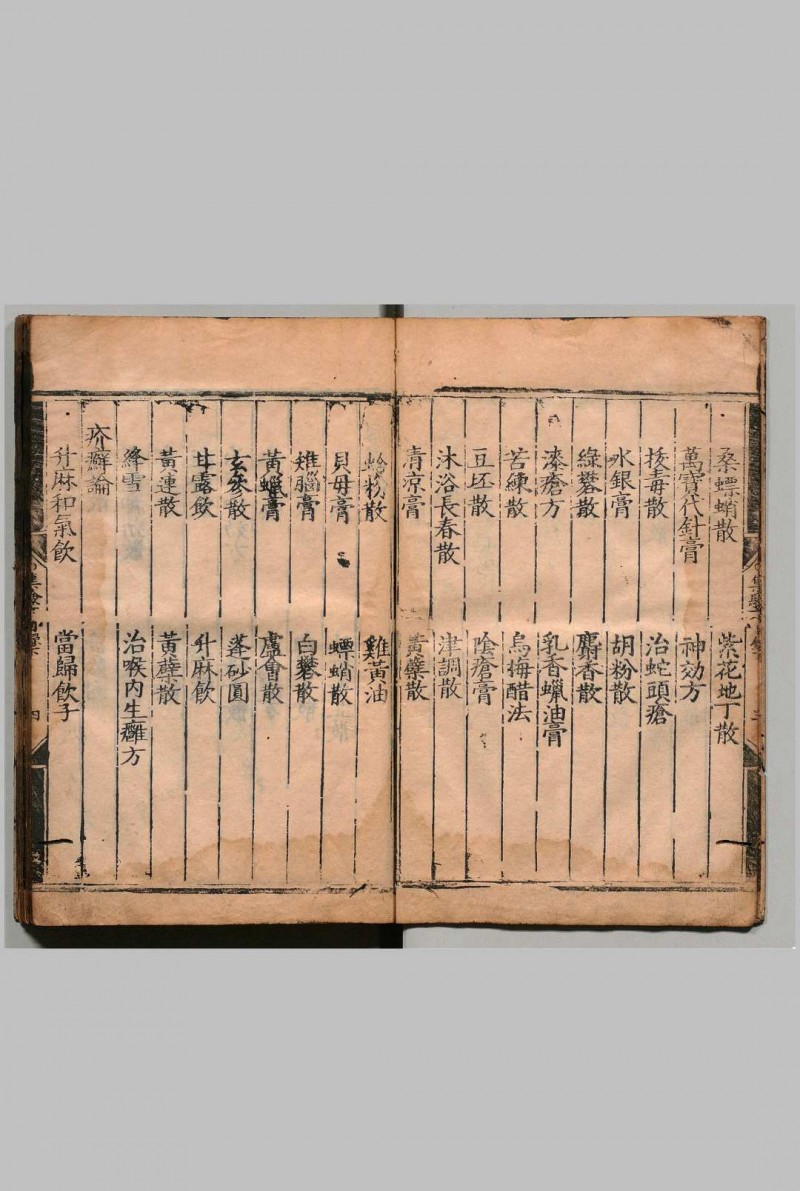 桑螵蛸散 紫花地丁散
萬寶代針膏 神効方
拔毒散 治蛇頭瘡
水銀膏 胡粉散
綠礬散 麝香散
漆瘡方 乳香蠟油膏
苦練散 烏梅醋法
豆坯散 陰瘡膏
沐浴長春散 津調散
清凉膏 黃蘗散
蛤粉散 雞黃油
貝母膏 螵蛸散
雄腦膏 白礬散
黃蠟膏 盧會散
玄參散 蓬砂圓
甘露飲 升麻飲
黃連散 黃蘗散
絳雪 治喉內生癰方
疥癬論
升麻和氣飲 當歸飲子
四